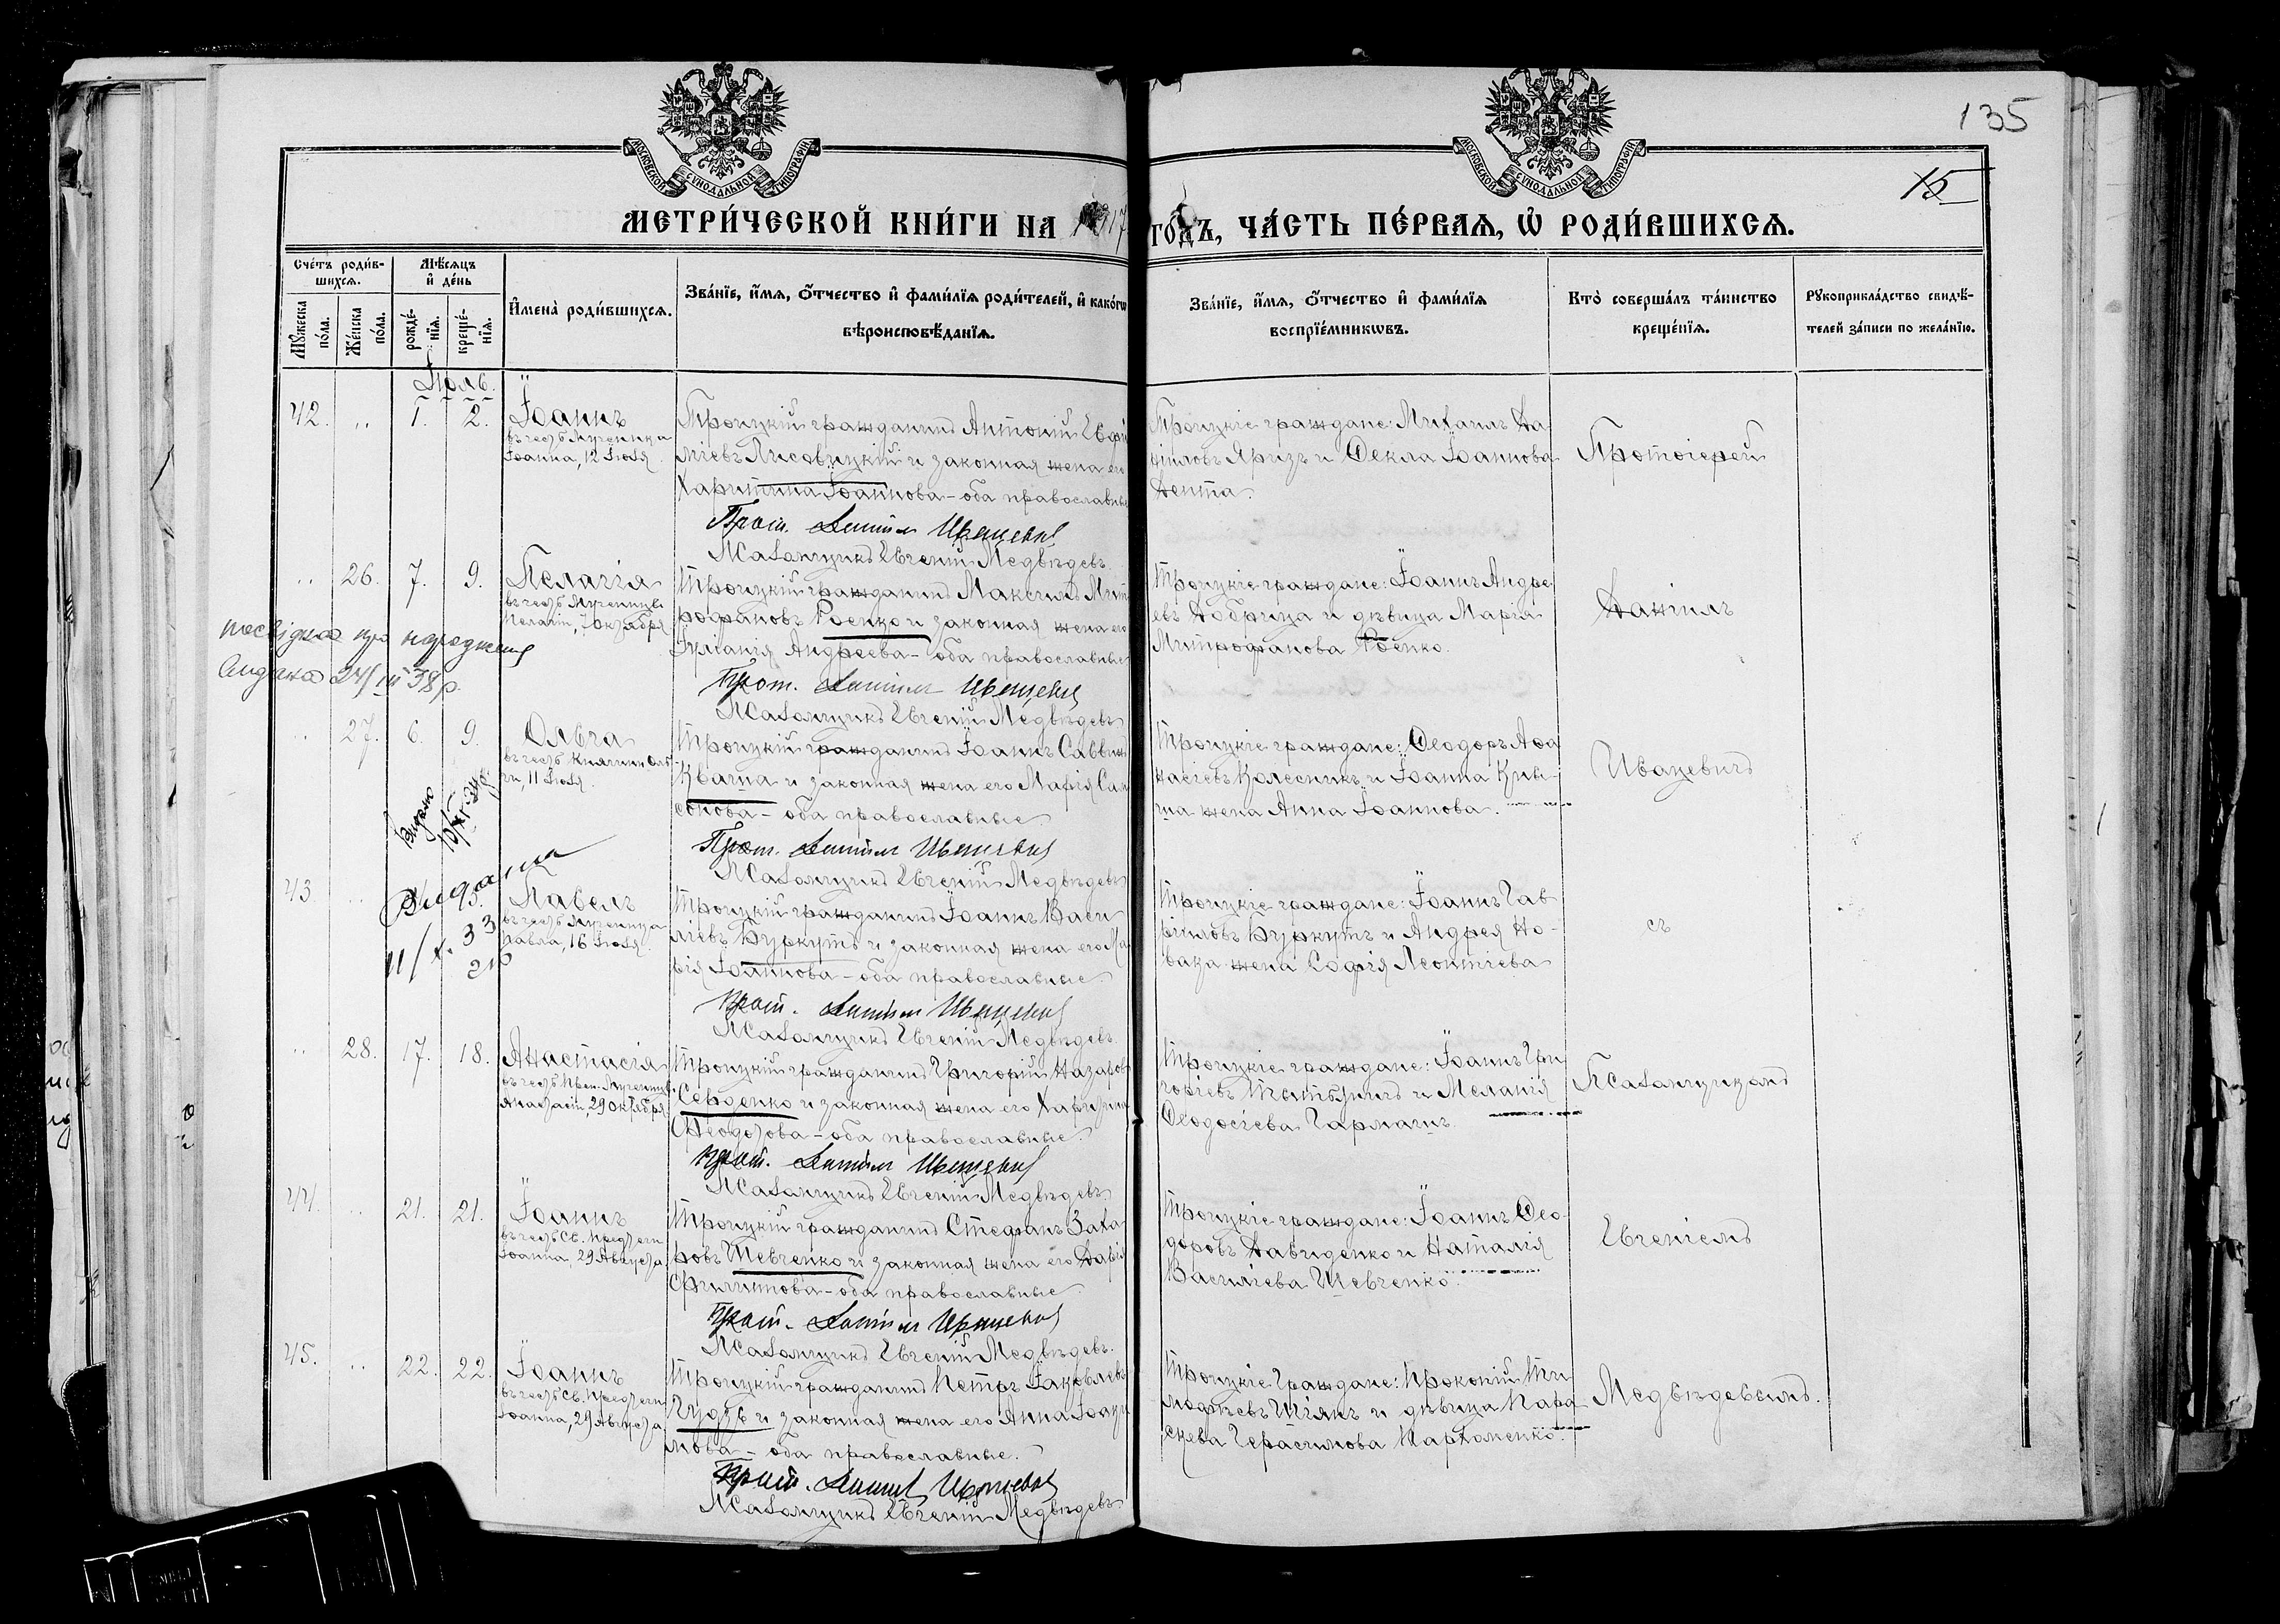 135
15
МОСКОВСКОЙ СѴНОДАЛЬНОЙ ТИПОГРАФІИ
МОСКОВСКОЙ СѴНОДАЛЬНОЙ ТИПОГРАФІИ
МЕТРИ́ЧЕСКОЙ КНИ́ГИ НА 1917 ГОДЪ, ЧА́СТЬ ПЕ́РВАѦ, Ѽ РОДИ́ВШИХСѦ.
Сче́тъ роди́в-
шихсѧ.
Мѣ́сѧцъ
и҆ де́нь
Мꙋ́жеска по́ла.
Же́нска по́ла.
рожде́-нїѧ.
креще́-нїѧ.
И҆мена̀ роди́вшихсѧ.
Зва́нїе, и҆́мѧ, ѻ҆́тчество и҆ фами́лїѧ роди́телей, и҆ како́гѡ
вѣроисповѣ́данїѧ.
Зва́нїе, и҆́мѧ, ѻ҆́тчество и҆ фами́лїѧ
воспрїе́мникѡвъ.
Кто̀ соверша́лъ та́инство
креще́нїѧ.
Рꙋкоприкла́дство свидѣ́-
телей за́писи по жела́нїю.
Іюль.
42. „ 1. 2. Іоаннъ
въ честь Мученика
Іоанна, 12 Іюля.
Троицкій гражданинъ Антоній Евфи
міевъ Лисовицкій и законная жена его
Харитина Іоаннова – оба православные
Прот. Даніилъ Иваницевичъ
Псаломщикъ Евгеній Медвѣдевъ.
Троицкіе граждане: Михаилъ Да-
ніиловъ Яризъ и Ѳекла Іоаннова
Дента.
Протоіерей
„ 26. 7. 9. Пелагія
въ честь Мученицы
Пелагіи, 7 октября
Троицкій гражданинъ Максимъ Мит
рофановъ Роенко и законная жена его
Іуліанія Андреева – оба православные
Прот. Даніилъ
Псаломщикъ Евгеній Медвѣдевъ
Троицкіе граждане: Іоаннъ Андре
евъ Добрица и дѣвица Марія
Митрофанова Роенко.
Даніилъ
посвідка про народження
видана 24/III 38 р.
„ 27. 6. 9. Ольга
въ честь Княгини Оль-
ги, 11 Іюля.
Троицкій гражданинъ Іоаннъ Саввинъ
Квагна и законная жена его Марія Сам
сонова – оба православные.
Прот. Даніилъ
Псаломщикъ Евгеній Медвѣдевъ
Троицкіе граждане: Ѳеодоръ Аѳа
насіевъ Колесникъ и Іоанна Кни-
ша жена Анна Іоаннова.
Видано
43. „ Павелъ
въ честь Мученика
Павла, 16 Іюля.
Видана
11/X. 33
Троицкій гражданинъ Іоаннъ Васи
ліевъ Буркутъ и законная жена его Ма
рія Іоаннова – оба православные.
Прот. Даніилъ
Псаломщикъ Евгеній Медвѣдевъ.
Троицкіе граждане: Іоаннъ Гав
ріиловъ Буркутъ и Андрея Но-
вака жена Софія Леонтіева
съ
„ 28. 17. 18. Анастасія
въ честь Преп. Мученицы
Анастасіи, 29 октября
Троицкій гражданинъ Григорій Назаровъ
Сероенко и законная жена его Харитина
Ѳеодорова – оба православные.
Прот. Даніилъ
Псаломщикъ Евгеній Медвѣдевъ
Троицкіе граждане: Іоаннъ Гри
горіевъ и Меланія
Ѳеодосіева Гармашъ.
Псаломщикомъ
44. „ 21. 21. Іоаннъ
въ честь Св. Предтечи
Іоанна, 29 Августа
Троицкій гражданинъ Стефанъ Заха
ровъ Шевченко и законная жена его Дарія
Филиппова – оба православные.
Прот. Даніилъ
Псаломщикъ Евгеній Медвѣдевъ.
Троицкіе граждане: Іоаннъ Ѳео-
доровъ Давиденко и Наталія
Василіева Шевченко.
Евгеніемъ
45. „ 22. 22. Іоаннъ
въ честь Св. Предтечи
Іоанна, 29 Августа
Троицкій гражданинъ Петръ Іаковлевъ
Гудзь и законная жена его Анна Іоаки
мова – оба православные.
Прот. Даніилъ
Псаломщикъ Евгеній Медвѣдевъ.
Троицкіе граждане: Прокопій Ти
моѳеевъ Шіянъ и дѣвица Пара
скева Герасимова Пархоменко.
Медвѣдевымъ.
Ивацевичъ